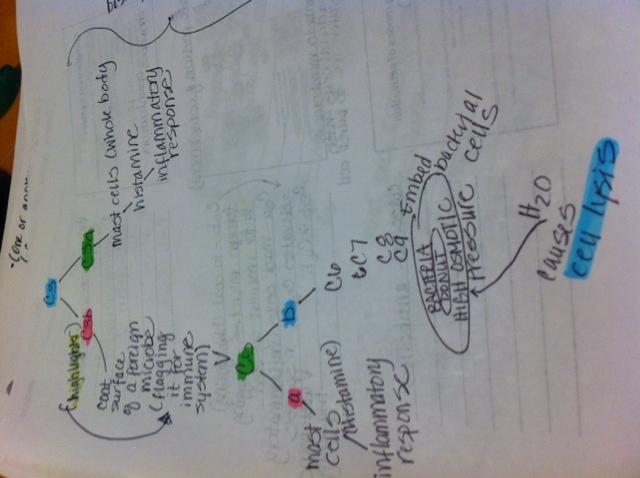 C3
C3b
C3a
(highlighter)
coat
surface
of a foreign
microbe
(flagging
it for
immune
system)
mast cells (whole body
histamine
inflammatory
response
C5
a
b
mast
cells
(histamine)
inflammatory
response
C6
C7
C8
C9
Embed
bacterial
cells
BACTERIA
DONUT
HIGH OSMOTIC
pressure
H2O
causes
cell lysis